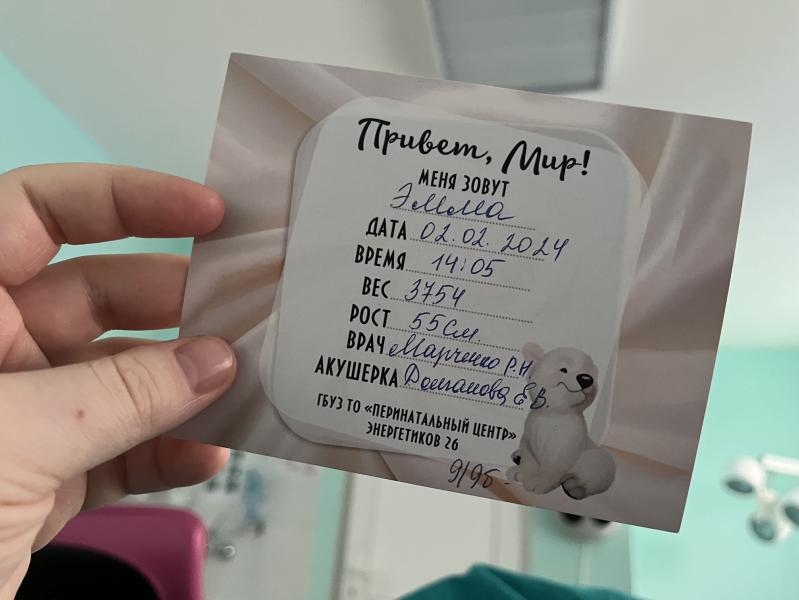 Привет, Мир!
МЕНЯ ЗОВУТ
Эмма
ДАТА 02.02.2024
ВРЕМЯ 14:05
ВЕС 3754
РОСТ 55см.
ВРАЧ Марченко Р.Н.
АКУШЕРКА Долганова Е.В.
ГБУЗ ТО «ПЕРИНАТАЛЬНЫЙ ЦЕНТР»
ЭНЕРГЕТИКОВ 26
9/9б-